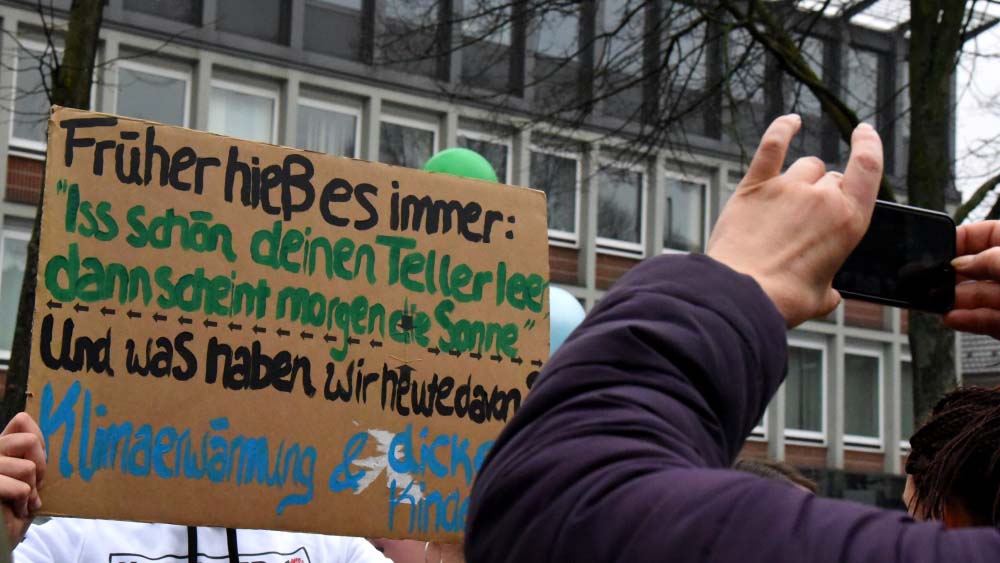 Früher hieß es immer:
"Iss schön deinen Teller leer
dann scheint morgen die Sonne"
Und was haben wir heute davon?
Klimaerwärmung & dicke
Kinder